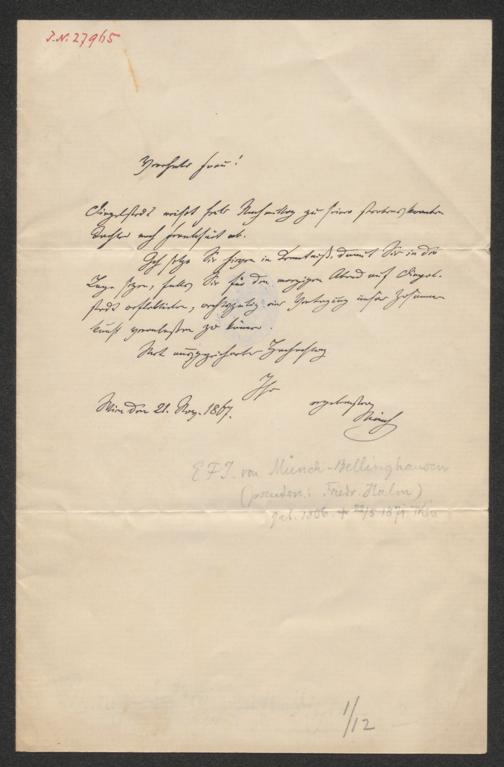 J.N. 27965
Verehrte Frau!
Dingelstedt reist heute Nachmittag zu seiner sterbenskranken
Tochter nach Frankfurt ab.
Ich setze Sie hievon in Kenntniß, damit Sie in der
Lage seyen, falls Sie für den morgigen Abend auf Dingel-
stedt reflektirten, rechtzeitig eine
zu können.
Mit ausgezeichneter Hochachtung
Ihr
Wien den 21. 1867. ergebenster
Münch
E.F.J. von Münch-Bellinghausen
(pseudon.: Friedr. Halm)
geb. 1806. + 22/5 1871 Wien
1/12